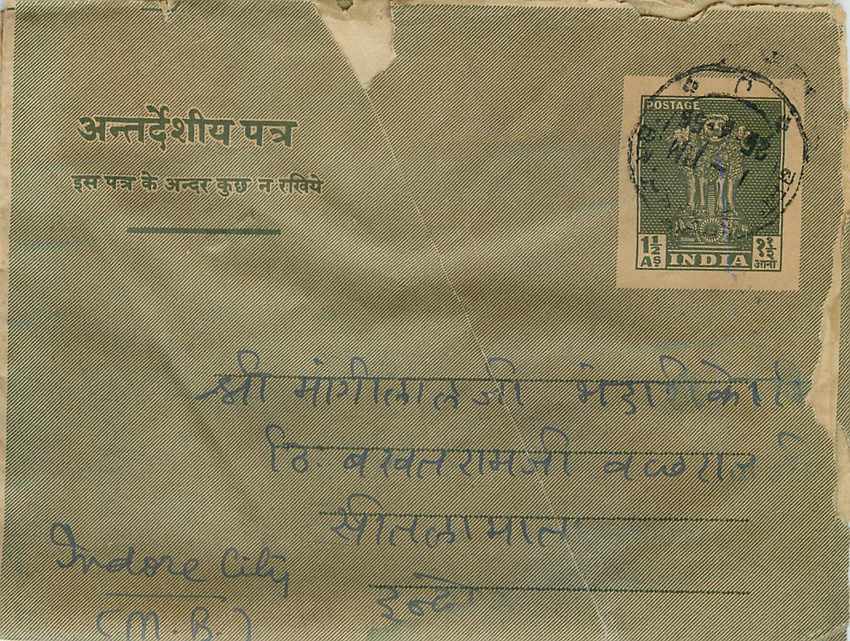 अन्तर्देशीय पत्र
इस पत्र के अन्दर कुछ न रखिये
POSTAGE
1½ As
INDIA
१½ आना
श्री मांगीलालजी
ठि. बखतरामजी वछराज
सीतलामात
Indore City
(M.B.)